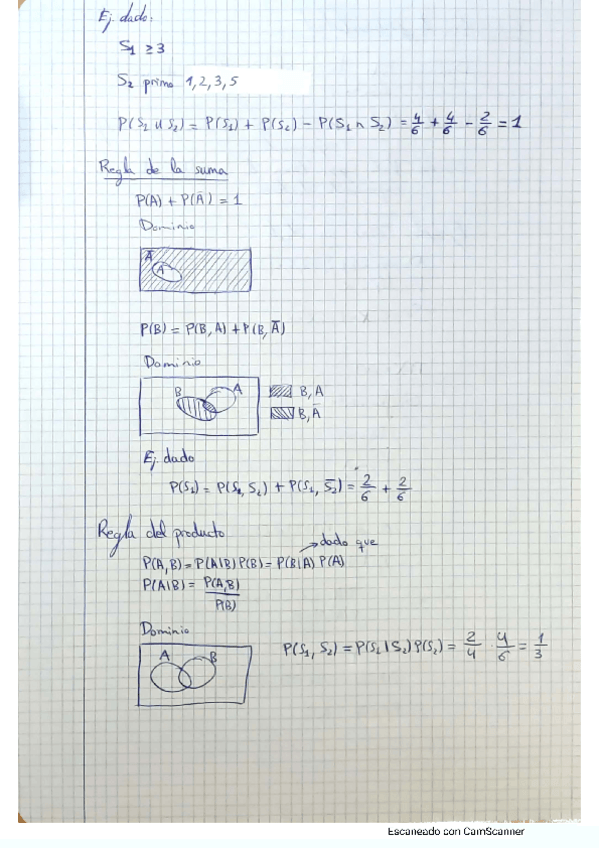 Ej. dado:
S₁ ≥ 3
S₂ primo 1, 2, 3, 5
P(S₁ ∪ S₂) = P(S₁) + P(S₂) − P(S₁ ∩ S₂) = 4/6 + 4/6 − 2/6 = 1
Regla de la suma
P(A) + P(Ā) = 1
Dominio
Ā
A
P(B) = P(B, A) + P(B, Ā)
Dominio
B A
B, A
B, Ā
Ej. dado
P(S₁) = P(S₁, S₂) + P(S₁, S̄₂) = 2/6 + 2/6
Regla del producto
dado que
P(A, B) = P(A|B) P(B) = P(B|A) P(A)
P(A|B) = P(A,B)/P(B)
Dominio
A B
P(S₁, S₂) = P(S₁|S₂) P(S₂) = 2/4 · 4/6 = 1/3
Escaneado con CamScanner